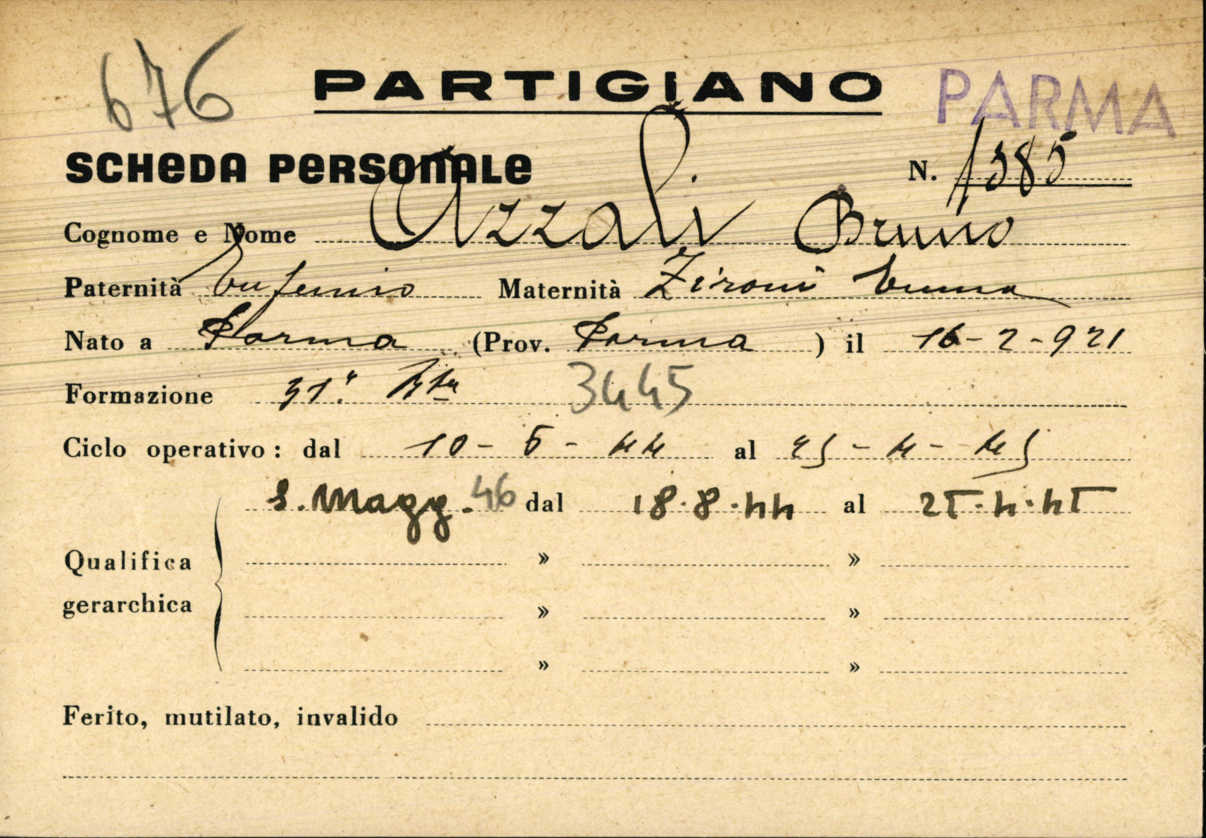 676 PARTIGIANO PARMA
SCHEDA PERSONALE N. 1385
Cognome e Nome Azzali Bruno
Paternità Eufemio Maternità Zironi Emma
Nato a Parma (Prov. Parma ) il 16-2-921
Formazione 31ª Bta 3445
Ciclo operativo: dal 10-5-44 al 25-4-45
S. Magg. 46 dal 18.8.44 al 25.4.45
Qualifica » »
gerarchica » »
» »
Ferito, mutilato, invalido